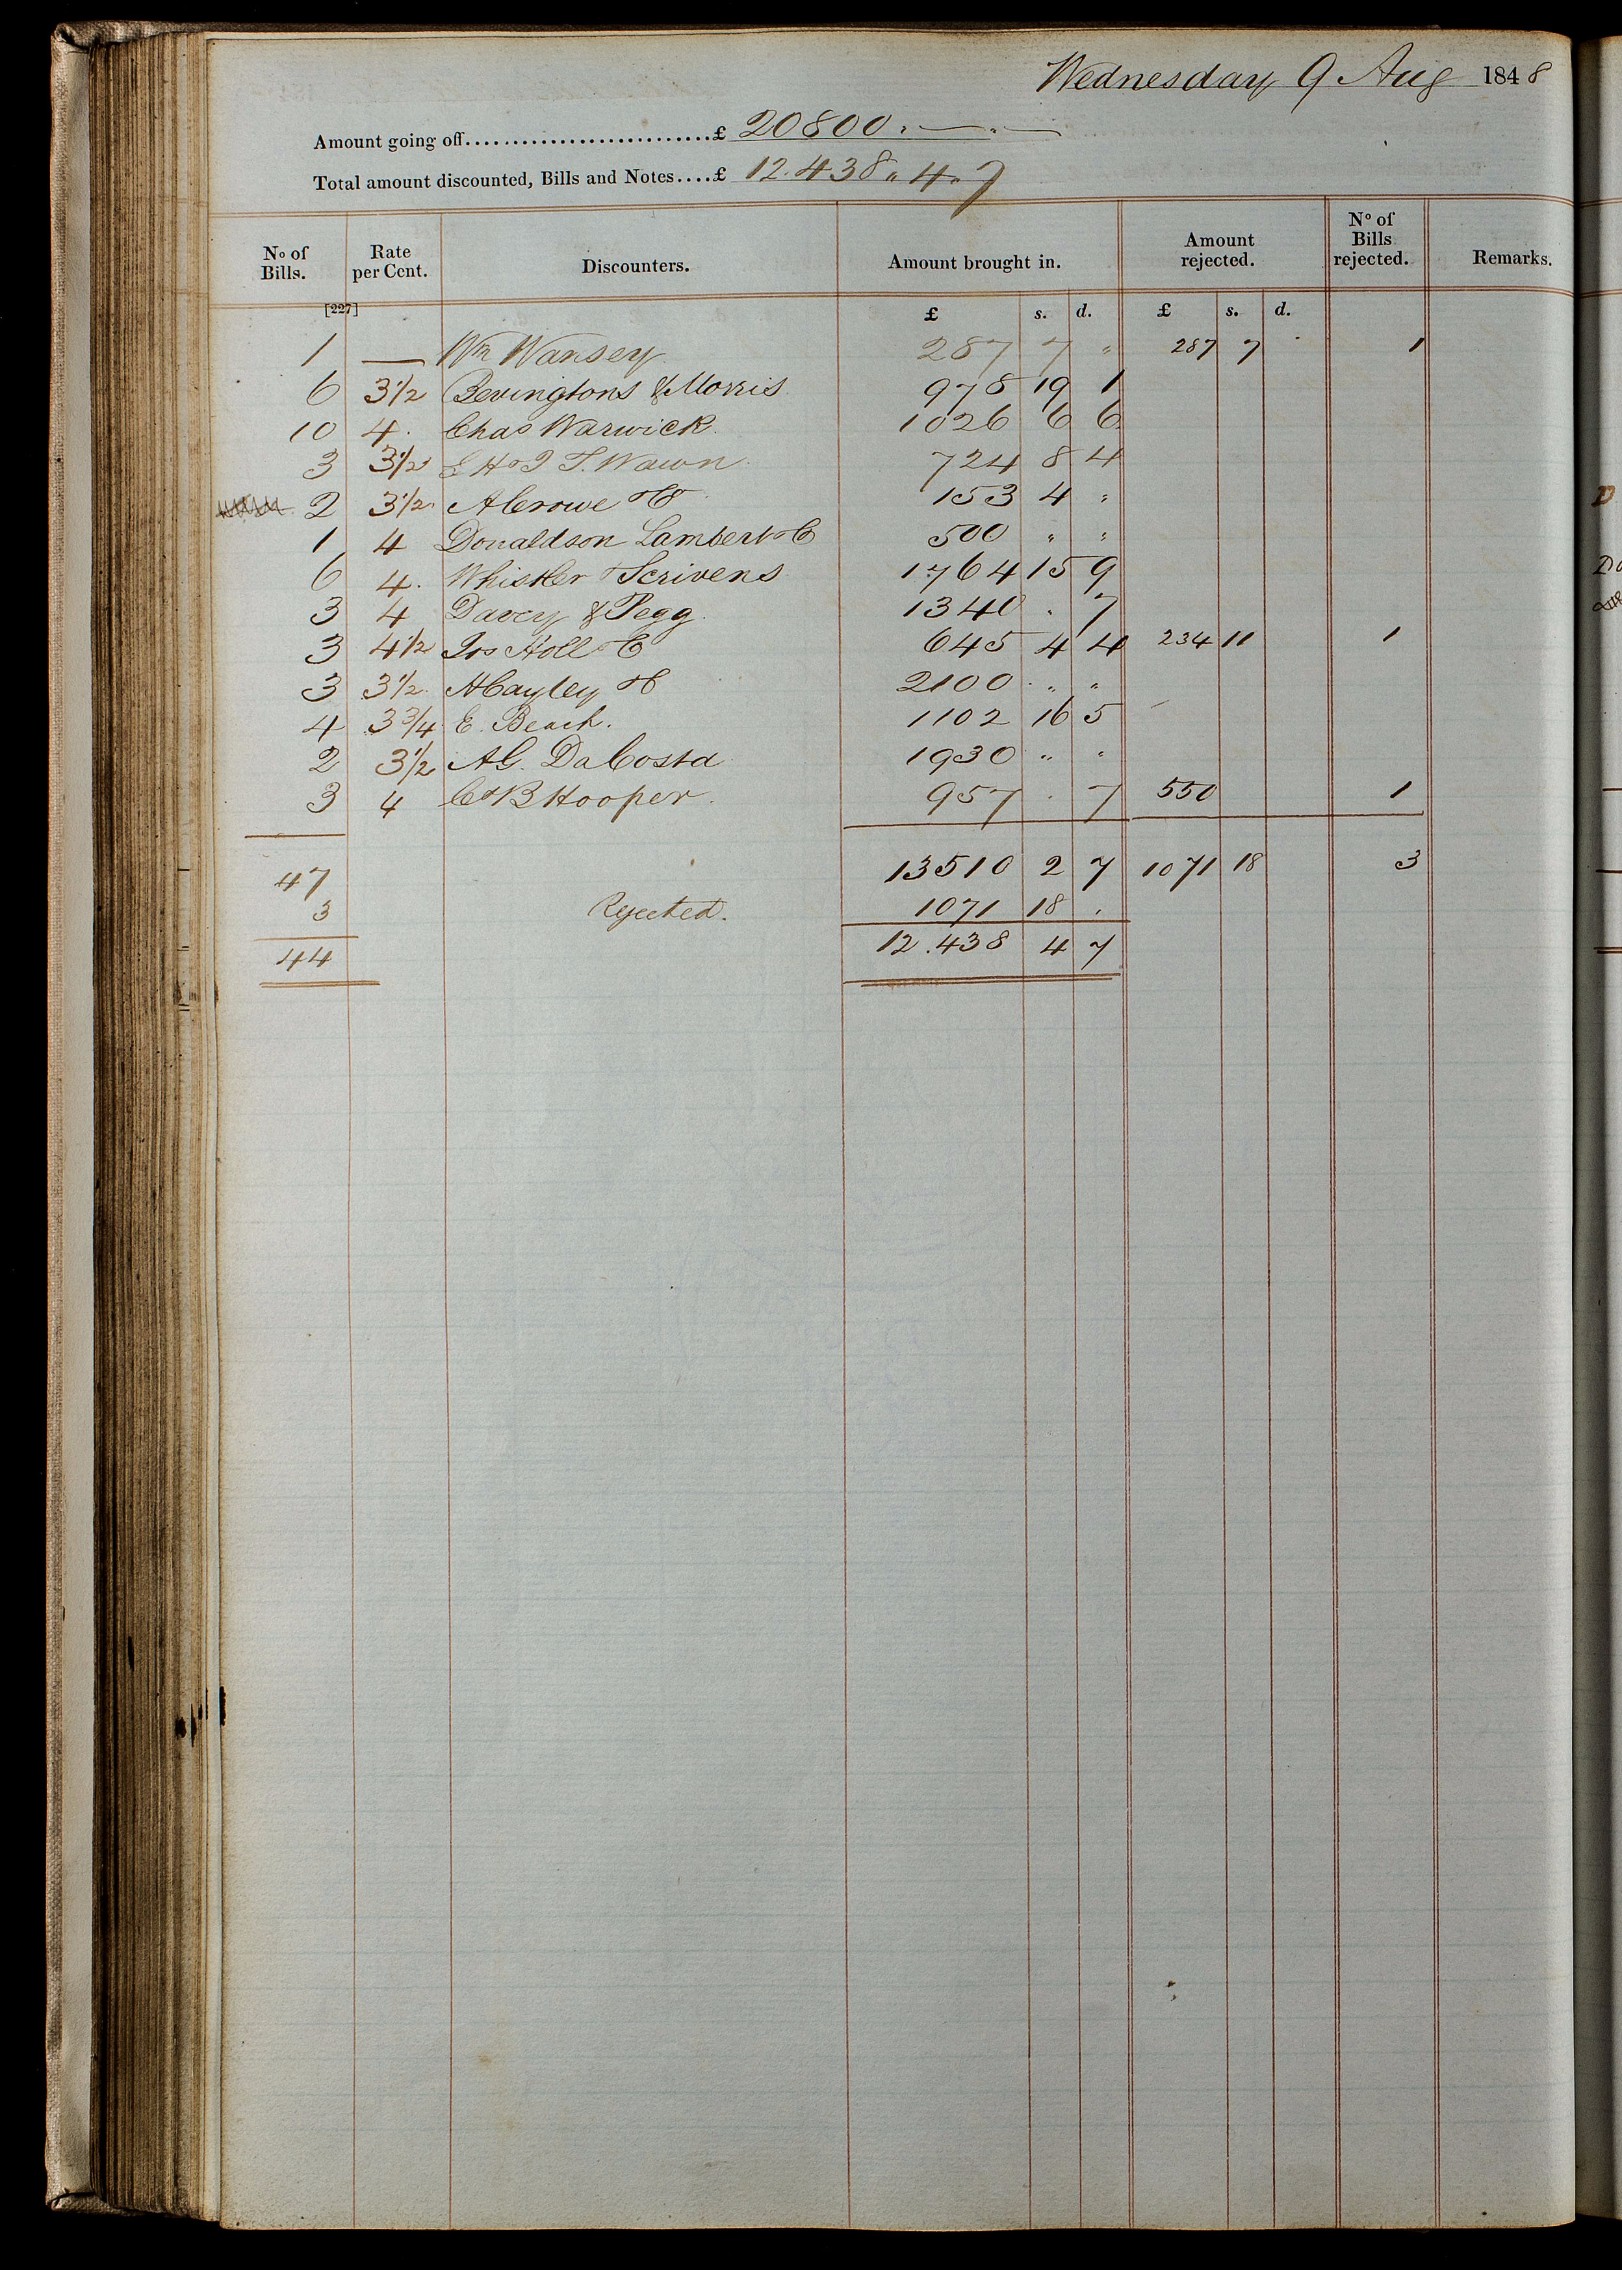 Wednesday 9 Aug 1848
Amount going off...........................£ 20800 . — . —
Total amount discounted, Bills and Notes....£ 12.438 " 4 " 7
No of Bills. Rate per Cent. Discounters. Amount brought in. Amount rejected. No of Bills rejected. Remarks.
[227] £ s. d. £ s. d.
1 — Wm Wansey 287 7 " 287 7 . 1
6 3 1/2 Bevingtons & Morris 978 19 1
10 4 Chas Warwick 1026 6 6
3 3 1/2 E H & T. Wawn 724 8 4
2 3 1/2 A Crowe & C 153 4 "
1 4 Donaldson Lambert & C 500 " "
6 4 Whisker & Scrivens 1764 15 9
3 4 Davey & Pegg 1340 . 7
3 4 1/2 Jos Holl & C 645 4 4 234 11 1
3 3 1/2 A Cayley & C 2100 " "
4 3 3/4 E. Beach. 1102 16 5
2 3 1/2 A G. Da Costa 1930 " "
3 4 C & B Hooper 957 . 7 550 1
47 13510 2 7 1071 18 3
3 Rejected. 1071 18 .
44 12.438 4 7